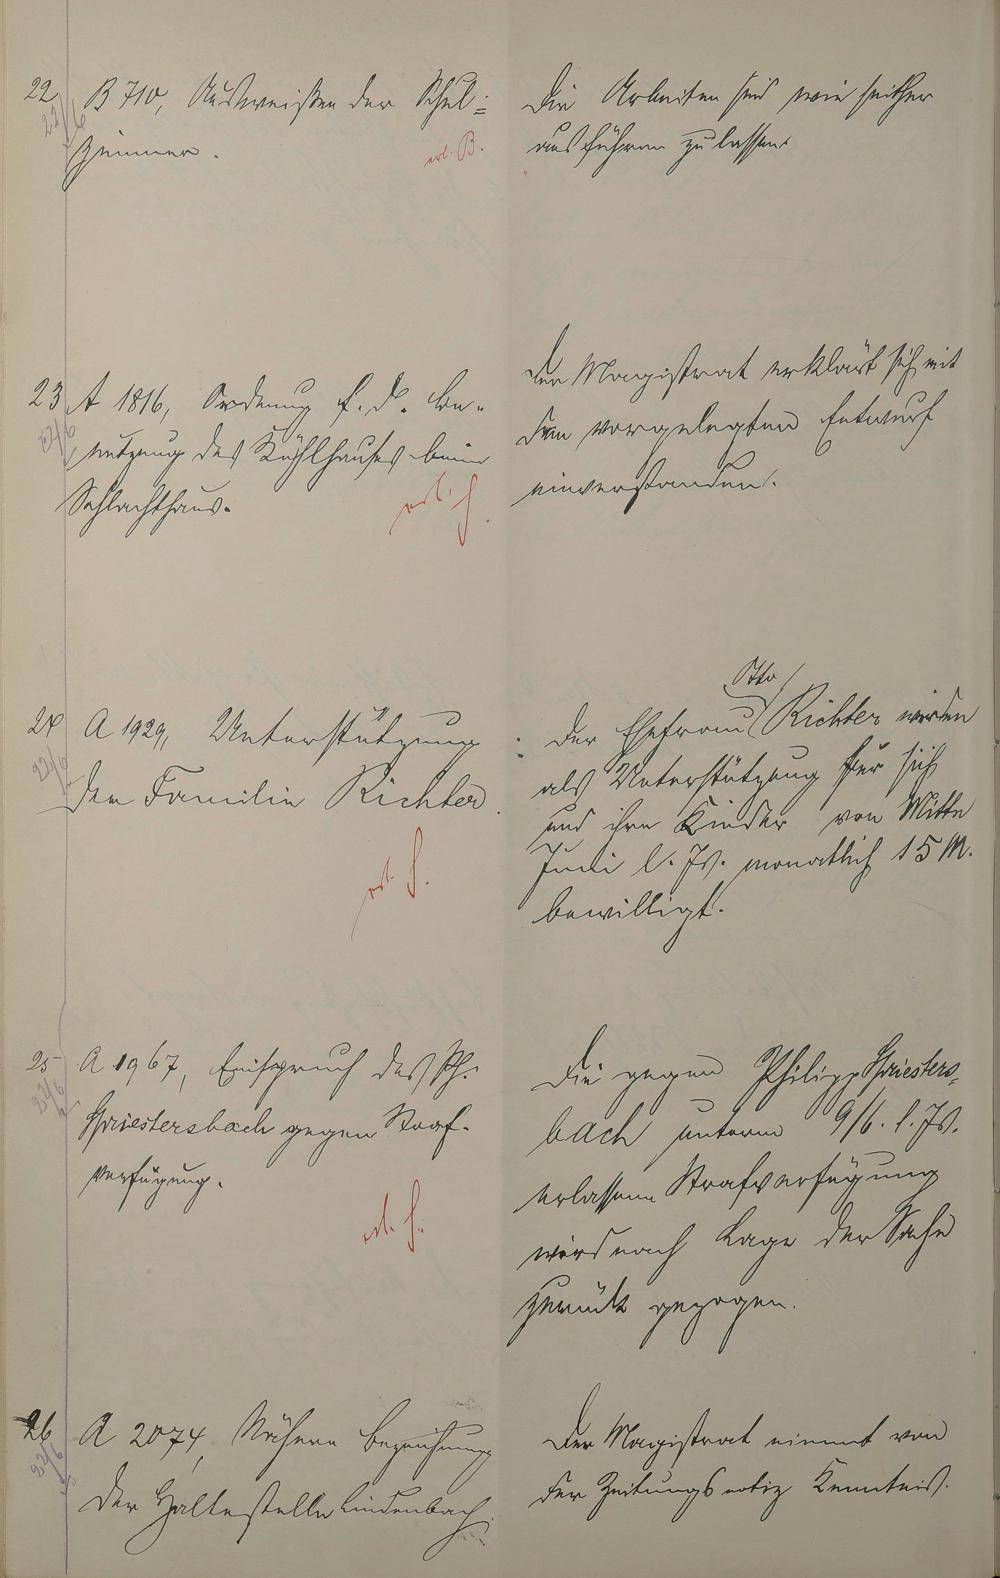 22 B 710, Ausweißen der Schul=
zimmer.
erl. B.
Die Arbeiten sind wie seither
ausführen zu lassen.
23 A 1816, Ordnung f. d. Be-
nutzung des Kühlhauses beim
Schlachthaus.
erl.
Der Magistrat erklärt sich mit
dem vorgelegten Entwurf
einverstanden.
24 A 1929, Unterstützung
der Familie Richter
erl.
Otto
Der Ehefrau Richter werden
als Unterstützung für sich
und ihre Kinder von Mitte
Juni l. Js. monatlich 15 M.
bewilligt.
25 A 1967, Einspruch des Ph.
Spriestersbach gegen Straf-
verfügung.
erl.
Die gegen Philipp Spriesters-
bach unterm 9/6. l. Js.
erlassene Strafverfügung
wird nach Lage der Sache
zurück gezogen.
26 A 2074, Nähere Bezeichnung
der Haltestelle Lindenbach.
Der Magistrat nimmt von
der Zeitungsnotiz Kenntnis.